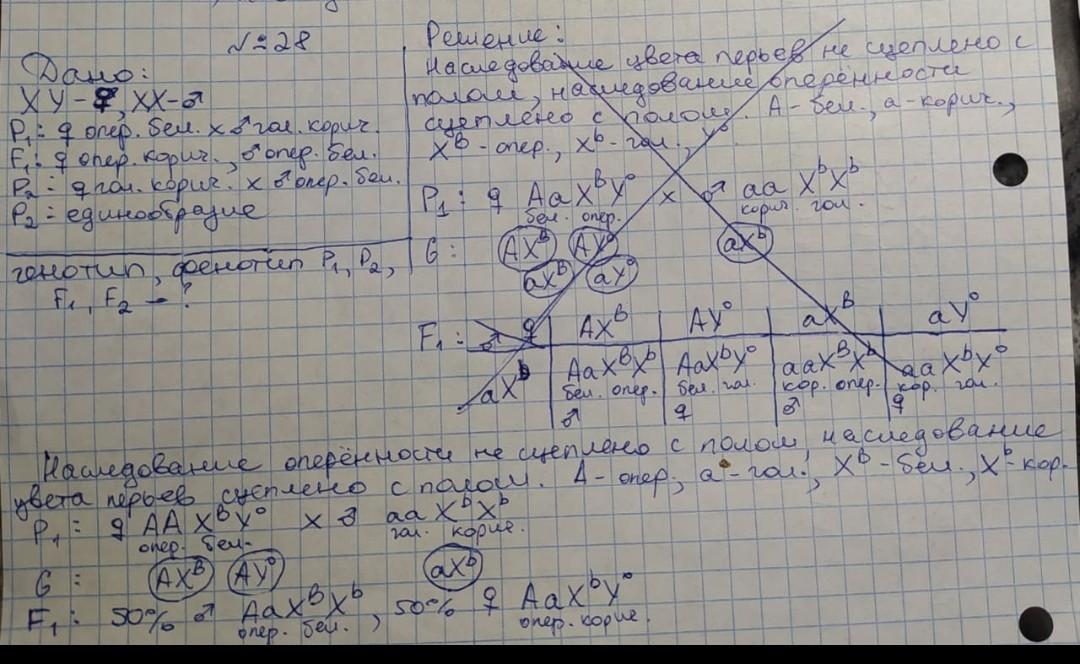 № 28
Дано:
XY-♀, XX-♂
P₁: ♀ опер. бел. x ♂ гол. корич.
F₁: ♀ опер. корич., ♂ опер. бел.
P₂: ♀ гол. корич. x ♂ опер. бел.
P₂: единообразие
генотип, фенотип P₁, P₂,
F₁, F₂ - ?
Решение:
Наследование цвета перьев не сцеплено с
полом, наследование оперённости
сцеплено с полом. A - бел., a - корич.,
Xᴮ - опер., Xᵇ - гол., Y⁰
P₁: ♀ AaXᴮY⁰ x ♂ aa XᵇXᵇ
бел. опер. корич. гол.
G: AXᴮ AY⁰ aXᵇ
aXᴮ aY⁰
F₁: ♂ ♀ AXᴮ AY⁰ aXᴮ aY⁰
aXᵇ AaXᴮXᵇ AaXᵇY⁰ aaXᴮXᵇ aaXᵇY⁰
бел. опер. бел. гол. кор. опер. кор. гол.
♂ ♀ ♂ ♀
Наследование оперённости не сцеплено с полом, наследование
цвета перьев сцеплено с полом. A - опер., a - гол., Xᴮ - бел., Xᵇ - кор.
P₁: ♀ AA XᴮY⁰ x ♂ aa XᵇXᵇ
опер. бел. гол. корич.
G: AXᴮ AY⁰ aXᵇ
F₁: 50% ♂ AaXᴮXᵇ, 50% ♀ AaXᵇY⁰
опер. бел. опер. корич.